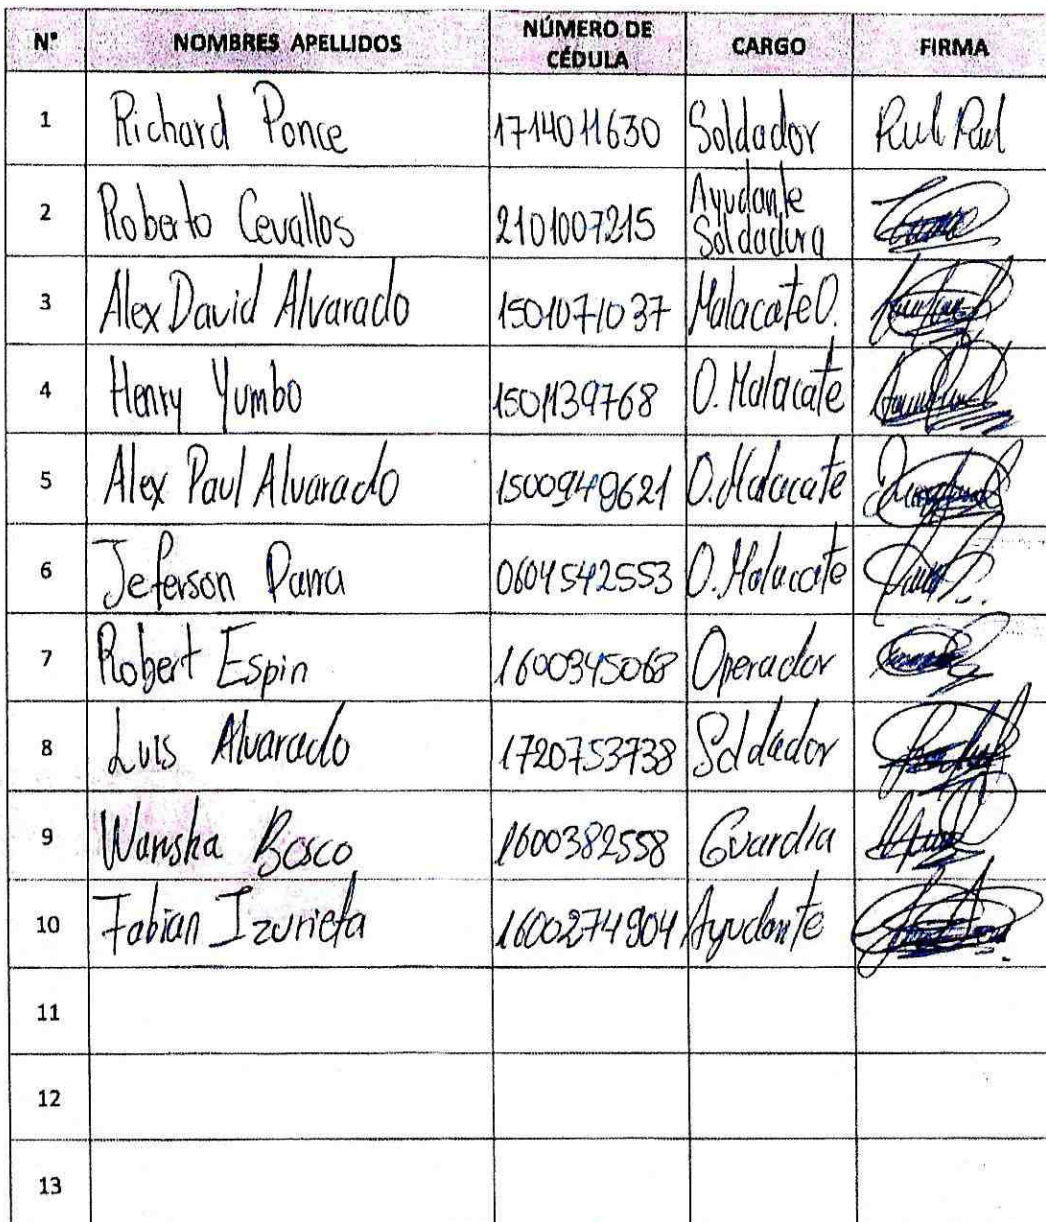 N° NOMBRES APELLIDOS NÚMERO DE CÉDULA CARGO FIRMA
1 Richard Ponce 1714011630 Soldador
2 Roberto Cevallos 2101007215 Ayudante Soldadura
3 Alex David Alvarado 1501071037 Malacate O.
4 Henry Yumbo 1501139768 O. Malacate
5 Alex Paul Alvarado 1500949621 O. Malacate
6 Jeferson Parra 0604542553 O. Malacate
7 Robert Espin 1600345068 Operador
8 Luis Alvarado 1720753738 Soldador
9 Wanska Bosco 1600382558 Guardia
10 Fabian Izurieta 1600274904 Ayudante
11
12
13